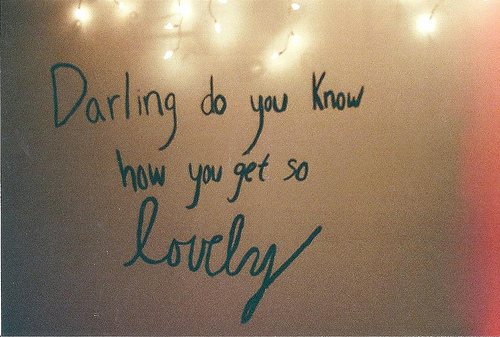 Darling do you Know
how you get so
lovely